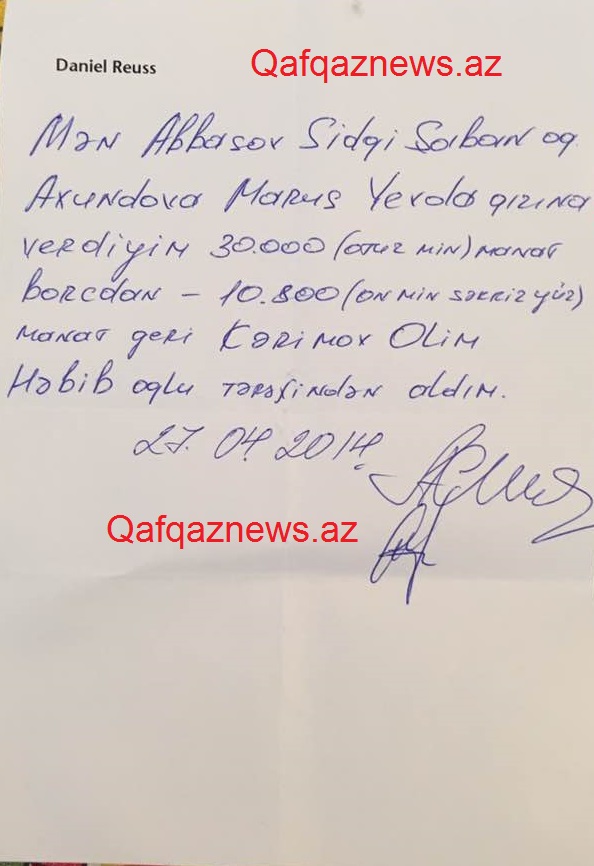 Daniel Reuss
Qafqaznews.az
Mən Abbasov Sidqi Şəban oq
Axundova Marus Yevda qızına
verdiyim 30.000 (otuz min) manat
borcdan – 10.800 (on min səkkiz yüz)
manat geri Kərimov Olim
Həbib oglu tərəfindən aldım.
27.04.2014.
Qafqaznews.az